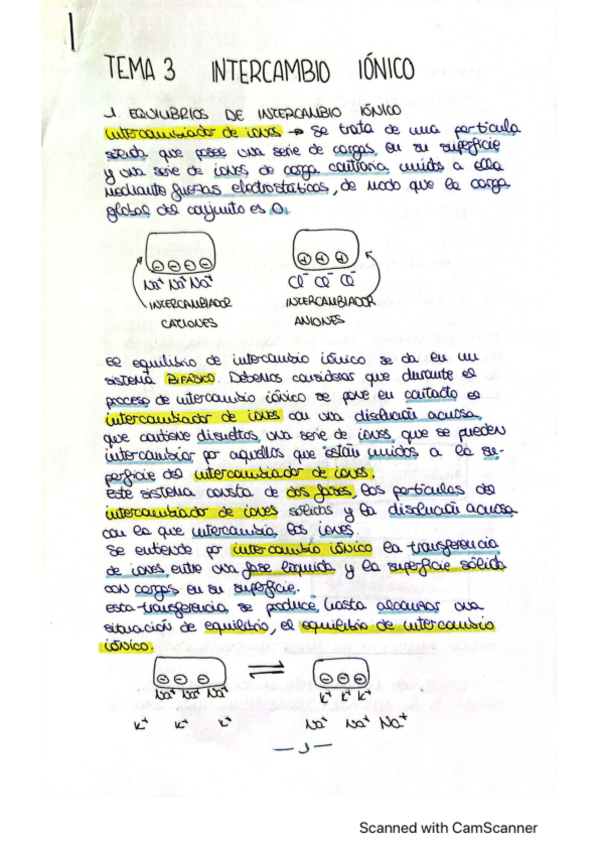 1
TEMA 3 INTERCAMBIO IÓNICO
1. EQUILIBRIOS DE INTERCAMBIO IÓNICO
Intercambiador de iones → Se trata de una partícula
sólida que posee una serie de cargas, en su superficie
y una serie de iones de carga contraria, unidos a ella
mediante fuerzas electrostáticas, de modo que la carga
global del conjunto es 0.
⊖ ⊖ ⊖ ⊖ ⊕ ⊕ ⊕
Na⁺ Na⁺ Na⁺ Cl⁻ Cl⁻ Cl⁻
INTERCAMBIADOR INTERCAMBIADOR
CATIONES ANIONES
El equilibrio de intercambio iónico se da en un
sistema BIFÁSICO. Debemos considerar que durante el
proceso de intercambio iónico se pone en contacto el
intercambiador de iones con una disolución acuosa,
que contiene disueltos, una serie de iones, que se pueden
intercambiar por aquellos que están unidos a la su-
perficie del intercambiador de iones.
Este sistema consta de dos fases, las partículas del
intercambiador de iones sólidas y la disolución acuosa
con la que intercambia los iones.
Se entiende por intercambio iónico la transferencia
de iones entre una fase líquida y la superficie sólida
con cargas en su superficie.
Esta transferencia se produce, hasta alcanzar una
situación de equilibrio, el equilibrio de intercambio
iónico.
⊖ ⊖ ⊖ ⇌ ⊖ ⊖ ⊖
Na⁺ Na⁺ Na⁺ K⁺ K⁺ K⁺
K⁺ K⁺ K⁺ Na⁺ Na⁺ Na⁺
— 1 —
Scanned with CamScanner